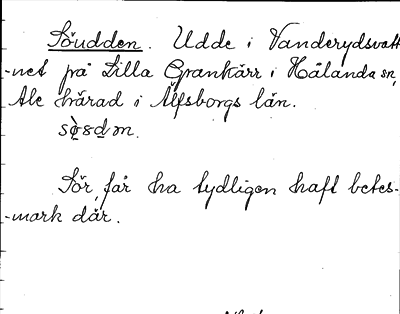 Söudden. Udde i Vanderydsvatt-
-net på Lilla Grankärr i Hålanda sn,
Ale härad i Älfsborgs län.
sö̀sdm.
Sör, får ha tydligen haft betes-
-mark där.